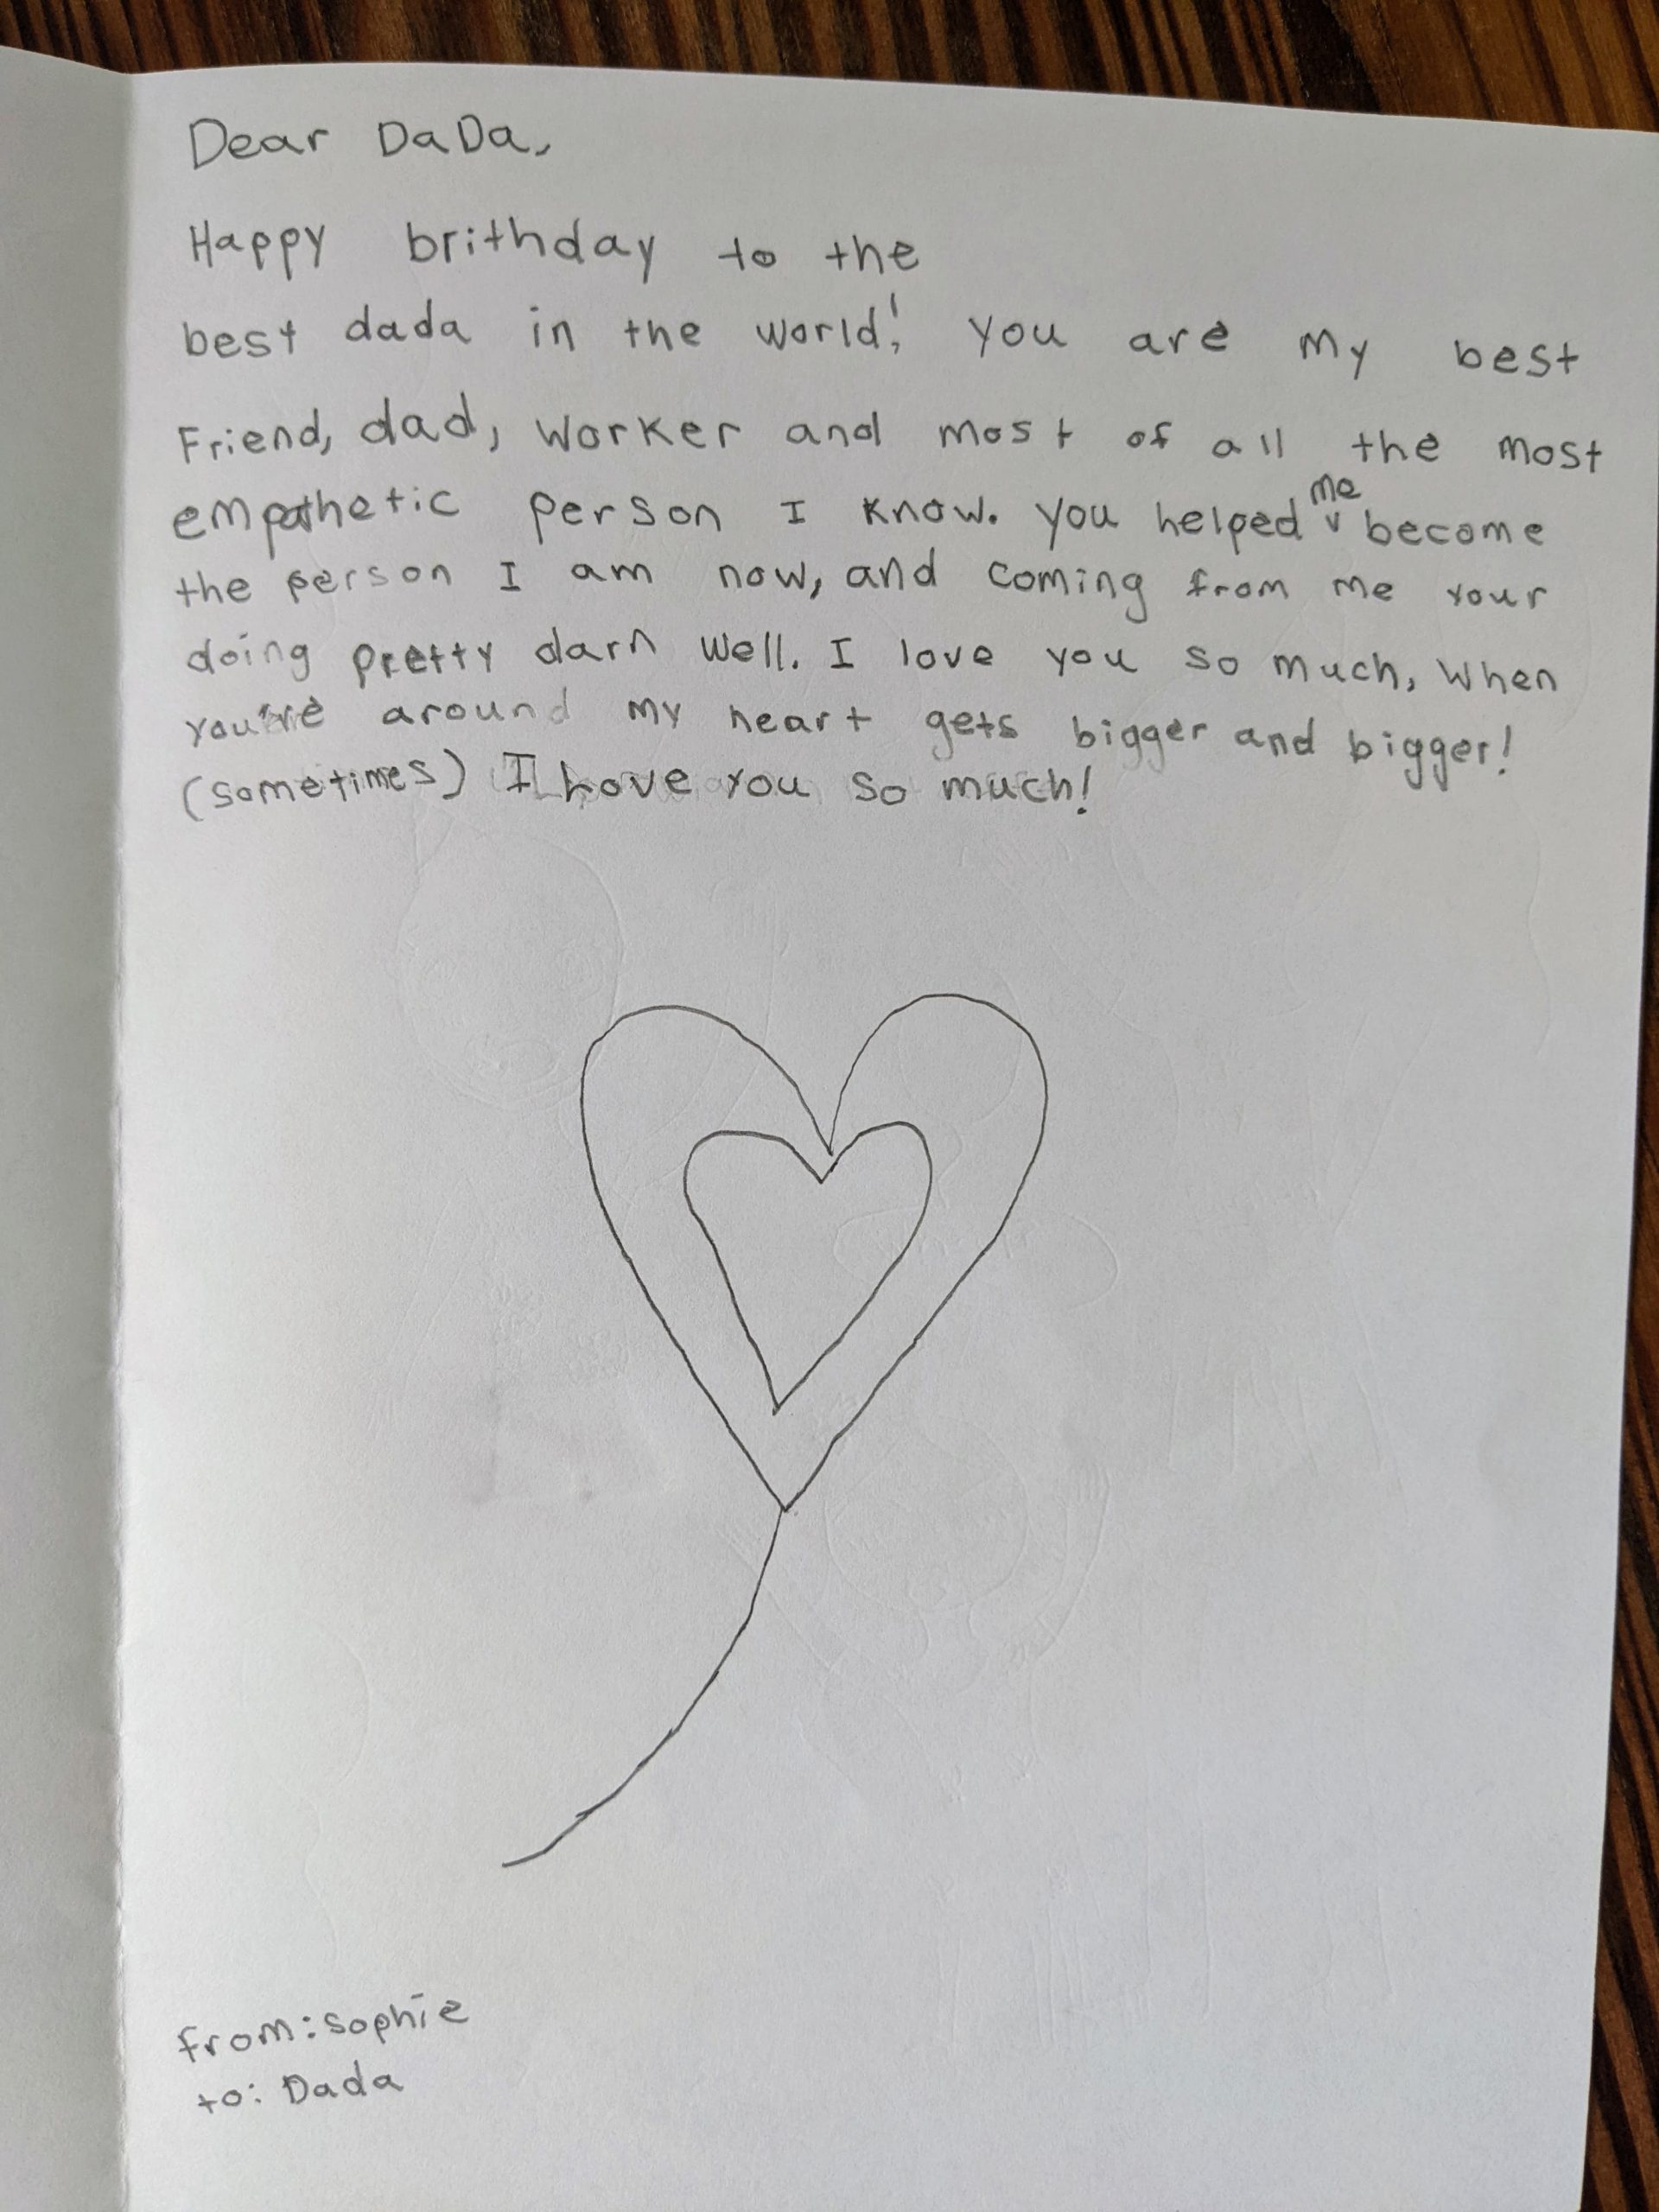 Dear DaDa,
Happy brithday to the
best dada in the world! you are my best
Friend, dad, worker and most of all the most
empathetic person I know. you helped me become
the person I am now, and coming from me your
doing pretty darn well. I love you so much, when
you're around my heart gets bigger and bigger!
(sometimes) I Love you so much!
from: sophie
to: Dada